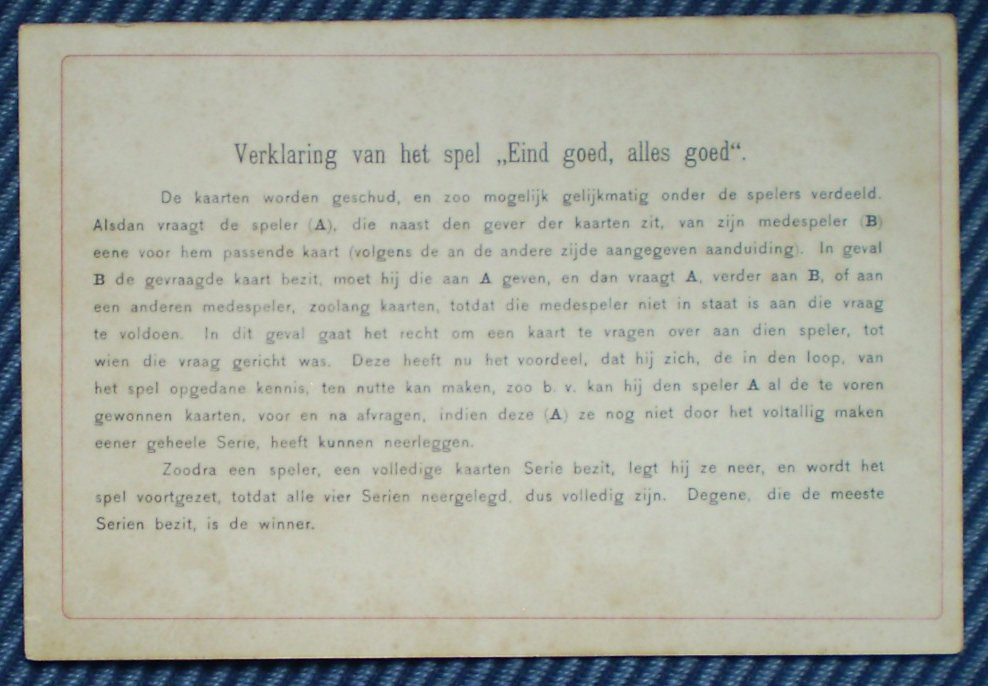 Verklaring van het spel „Eind goed, alles goed“.
De kaarten worden geschud, en zoo mogelijk gelijkmatig onder de spelers verdeeld.
Alsdan vraagt de speler (A), die naast den gever der kaarten zit, van zijn medespeler (B)
eene voor hem passende kaart (volgens de an de andere zijde aangegeven aanduiding). In geval
B de gevraagde kaart bezit, moet hij die aan A geven, en dan vraagt A, verder aan B, of aan
een anderen medespeler, zoolang kaarten, totdat die medespeler niet in staat is aan die vraag
te voldoen. In dit geval gaat het recht om een kaart te vragen over aan dien speler, tot
wien die vraag gericht was. Deze heeft nu het voordeel, dat hij zich, de in den loop, van
het spel opgedane kennis, ten nutte kan maken, zoo b. v. kan hij den speler A al de te voren
gewonnen kaarten, voor en na afvragen, indien deze (A) ze nog niet door het voltallig maken
eener geheele Serie, heeft kunnen neerleggen.
Zoodra een speler, een volledige kaarten Serie bezit, legt hij ze neer, en wordt het
spel voortgezet, totdat alle vier Serien neergelegd, dus volledig zijn. Degene, die de meeste
Serien bezit, is de winner.